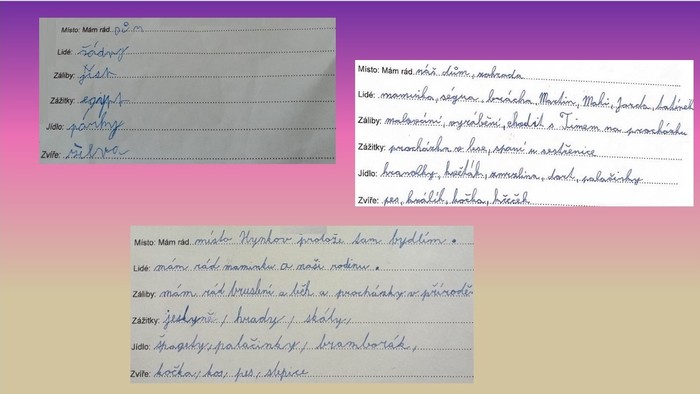 Místo: Mám rád dům
Lidé: žádný
Záliby: jíst
Zážitky: egypt
Jídlo: párky
Zvíře: želva
Místo: Mám rád náš dům, zahrada
Lidé: maminka, ségra, brácha, Martin, Maki, Jarda, tatínek
Záliby: malování, vyrábění, chodit s Timem na procházku
Zážitky: procházka v lese, spaní u sestřenice
Jídlo: hranolky, kečup, zmrzlina, dort, palačinky
Zvíře: pes, králík, kočka, křeček
Místo: Mám rád místo Hynkov protože tam bydlím.
Lidé: mám rád maminku a naši rodinu.
Záliby: mám rád bruslení a běh a procházky v přírodě
Zážitky: jeskyně, hrady, skály,
Jídlo: špagety, palačinky, bramborák,
Zvíře: kočka, kos, pes, slepice